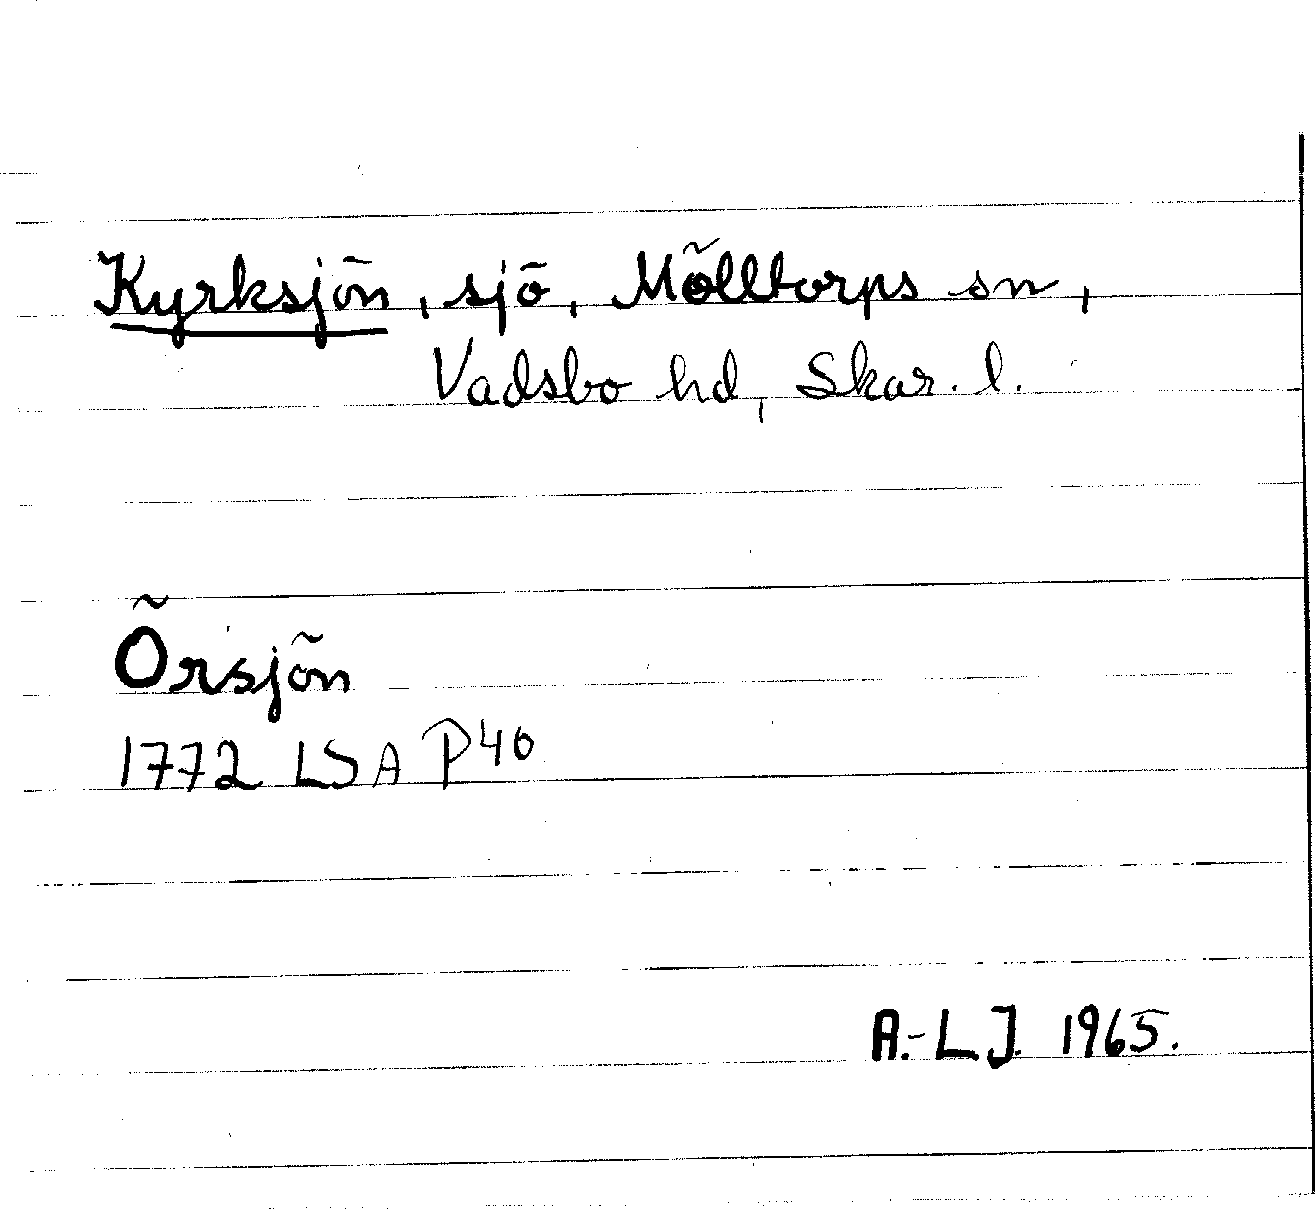 Kyrksjön, sjö, Mölltorps sn,
Vadsbo hd, Skar. l.
Örsjön
1772 LSA P40
A.-L.J. 1965.